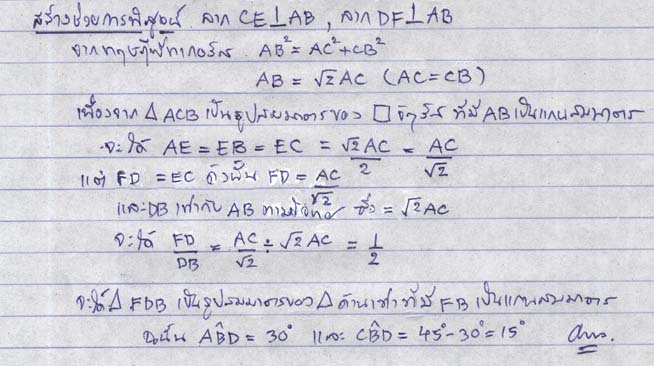 สร้างช่วยการพิสูจน์ ลาก CE⊥AB , ลาก DF⊥AB
จากทฤษฎีพีทาโกรัส AB² = AC² + CB²
AB = √2 AC (AC = CB)
เนื่องจาก Δ ACB เป็นรูปสมมาตรของ □ จัตุรัส ที่มี AB เป็นแกนสมมาตร
จะได้ AE = EB = EC = √2 AC/2 = AC/√2
แต่ FD = EC ดังนั้น FD = AC/√2
และ DB เท่ากับ AB ตามโจทย์ ซึ่ง = √2 AC
จะได้ FD/DB = AC/√2 ÷ √2 AC = 1/2
จะได้ Δ FDB เป็นรูปสมมาตรของ Δ ด้านเท่า ที่มี FB เป็นแกนสมมาตร
ฉะนั้น AB̂D = 30° และ CB̂D = 45° - 30° = 15° Ans.